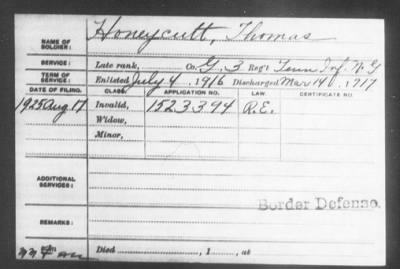 Honeycutt, Thomas
NAME OF SOLDIER:
SERVICE: Late rank, Co. G, 3 Reg't Tenn Inf. N G
TERM OF SERVICE: Enlisted July 4, 1916 Discharged Mar 14, 1917
DATE OF FILING. CLASS. APPLICATION NO. LAW. CERTIFICATE NO.
1925 Aug 17 Invalid, 1523394 R.E.
Widow,
Minor,
ADDITIONAL SERVICES:
Border Defense.
REMARKS:
Died , 1 , at